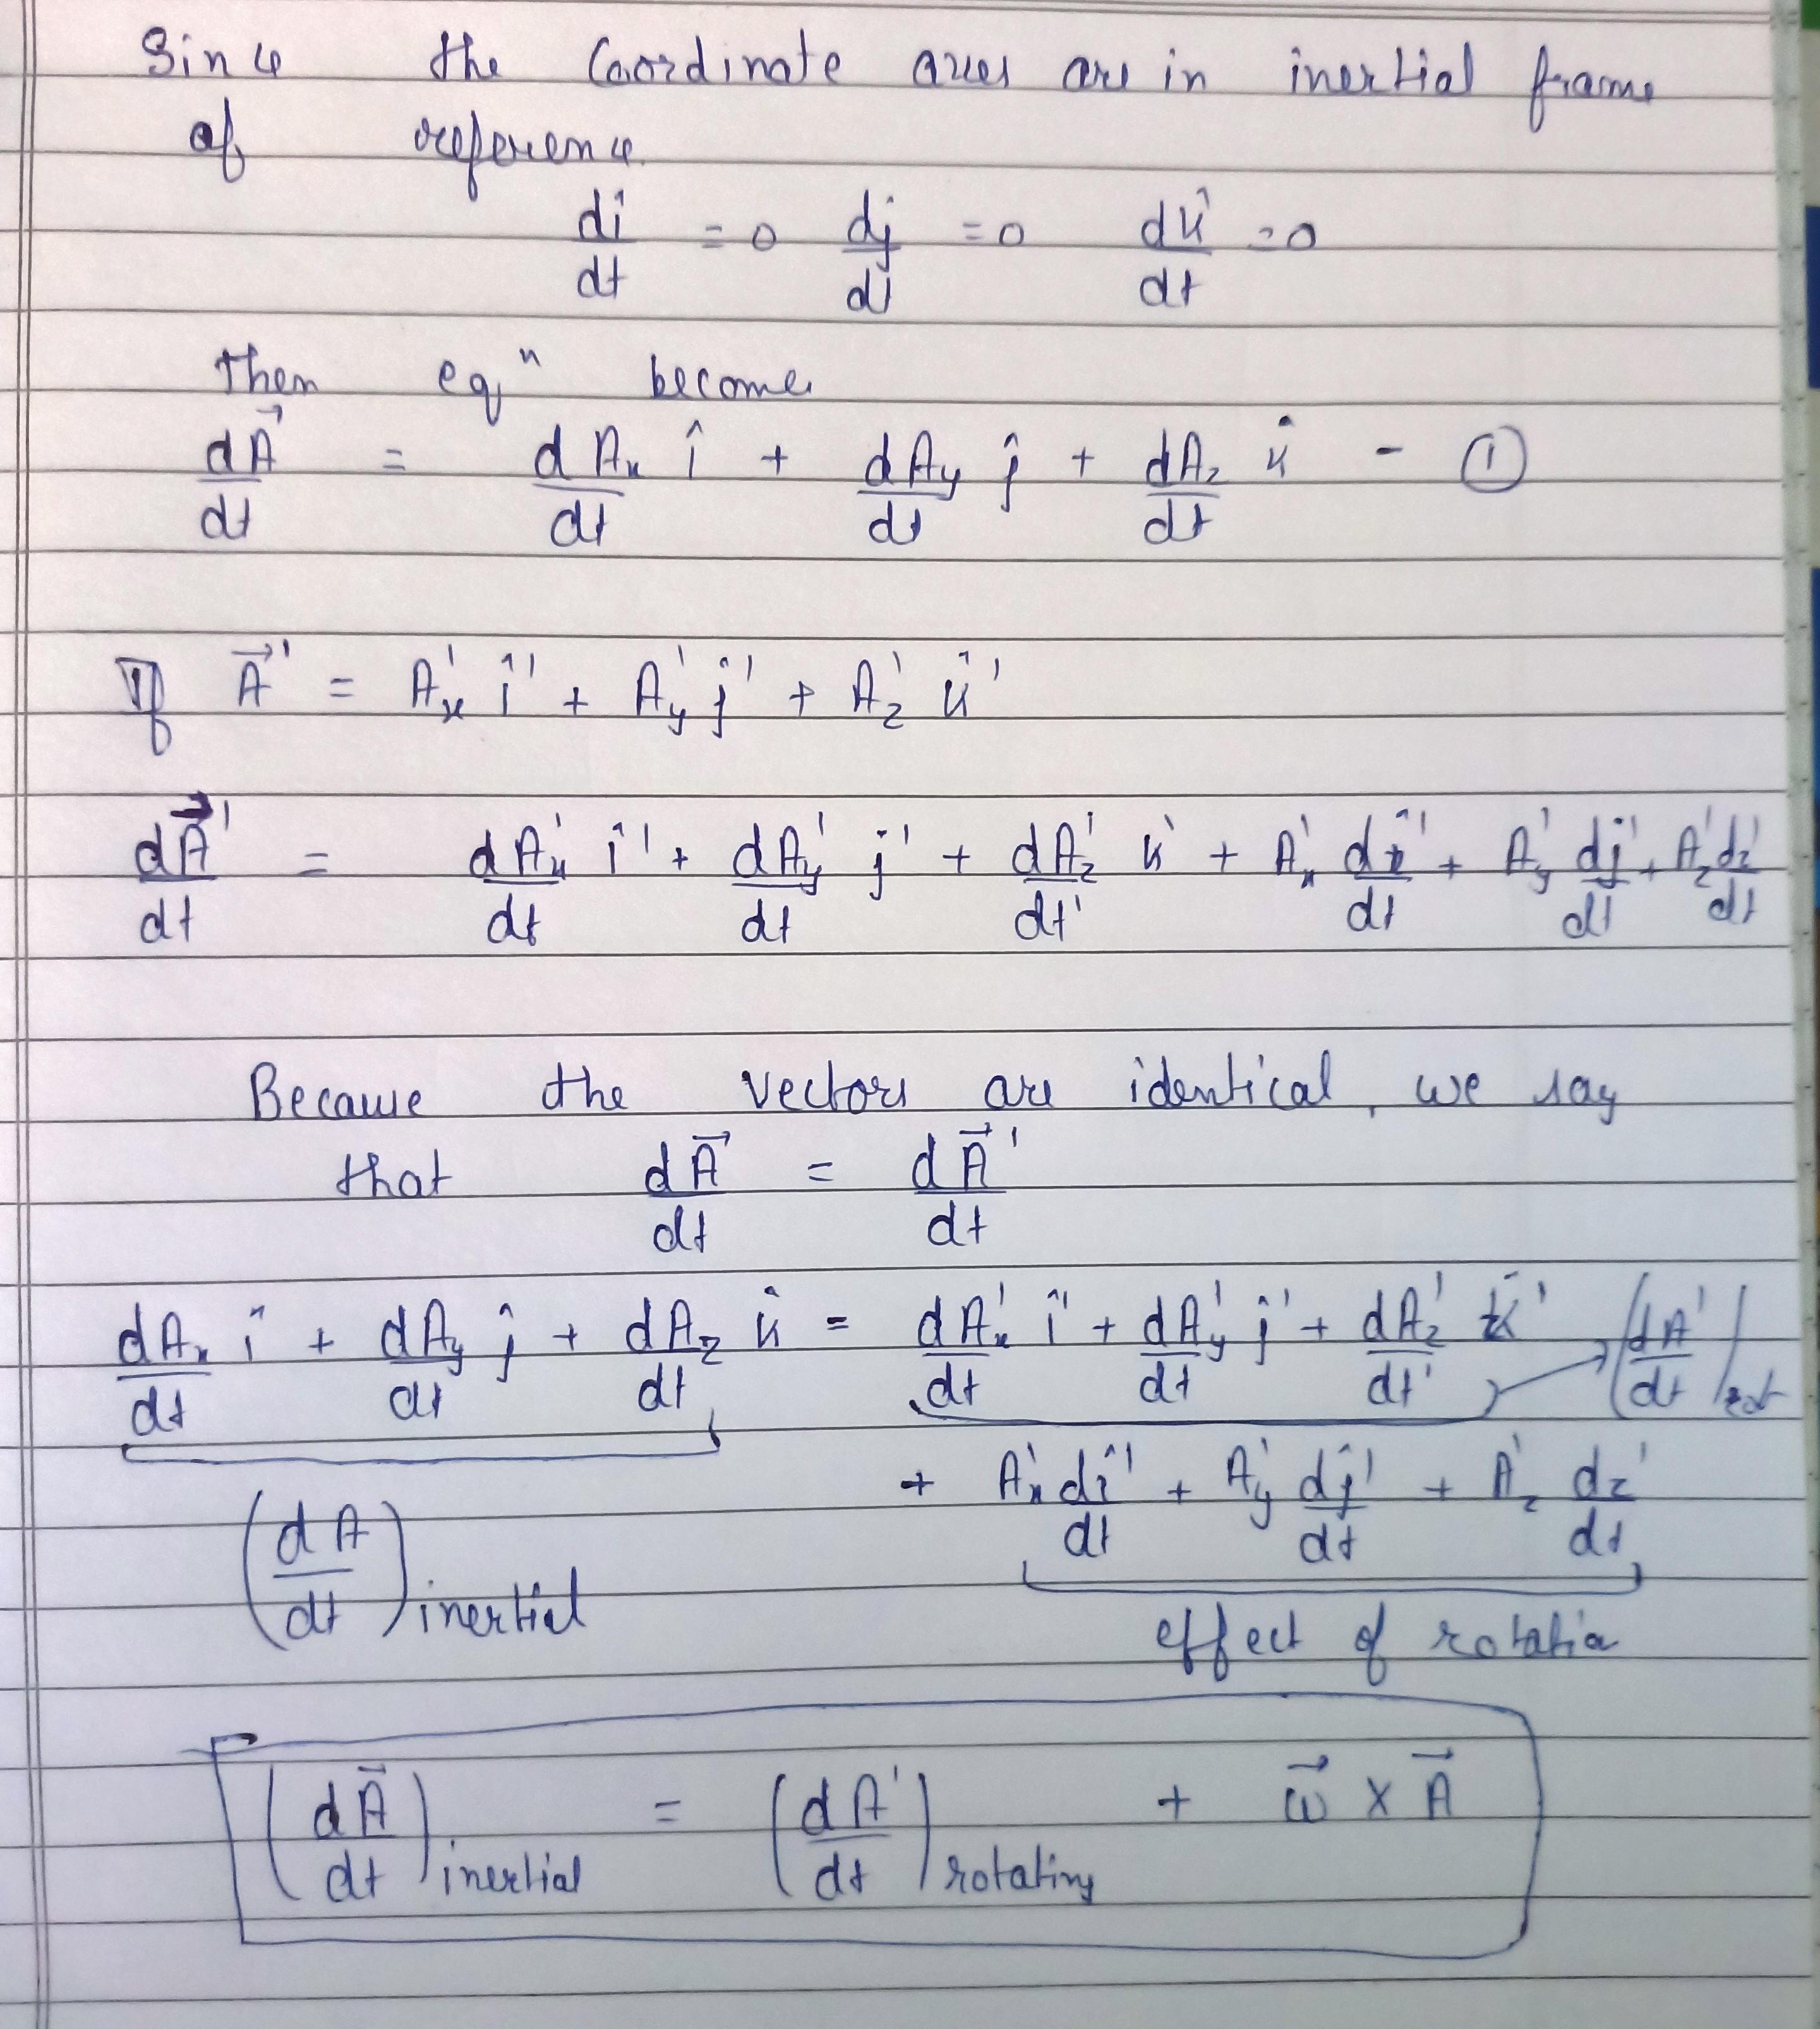 Since the Coordinate axes are in inertial frame
of reference
dî/dt = 0 dĵ/dt = 0 dk̂/dt = 0
Then eqⁿ become
dA⃗/dt = dAx/dt î + dAy/dt ĵ + dAz/dt k̂ - ①
If A⃗' = A'x î' + A'y ĵ' + A'z k̂'
dA⃗'/dt = dA'x/dt î' + dA'y/dt j' + dA'z/dt' k' + A'x dî'/dt + A'y dj'/dt + A'z dz'/dt
Because the vectors are identical, we say
that dA⃗/dt = dA⃗'/dt
dAx/dt î + dAy/dt ĵ + dAz/dt k̂ = dA'x/dt î' + dA'y/dt j' + dA'z/dt' k' (dA'/dt)rot
+ A'x dî'/dt + A'y dĵ'/dt + A'z dz'/dt
(dA/dt)inertial
effect of rotatio
(dA⃗/dt)inertial = (dA'/dt)rotating + ω⃗ × A⃗